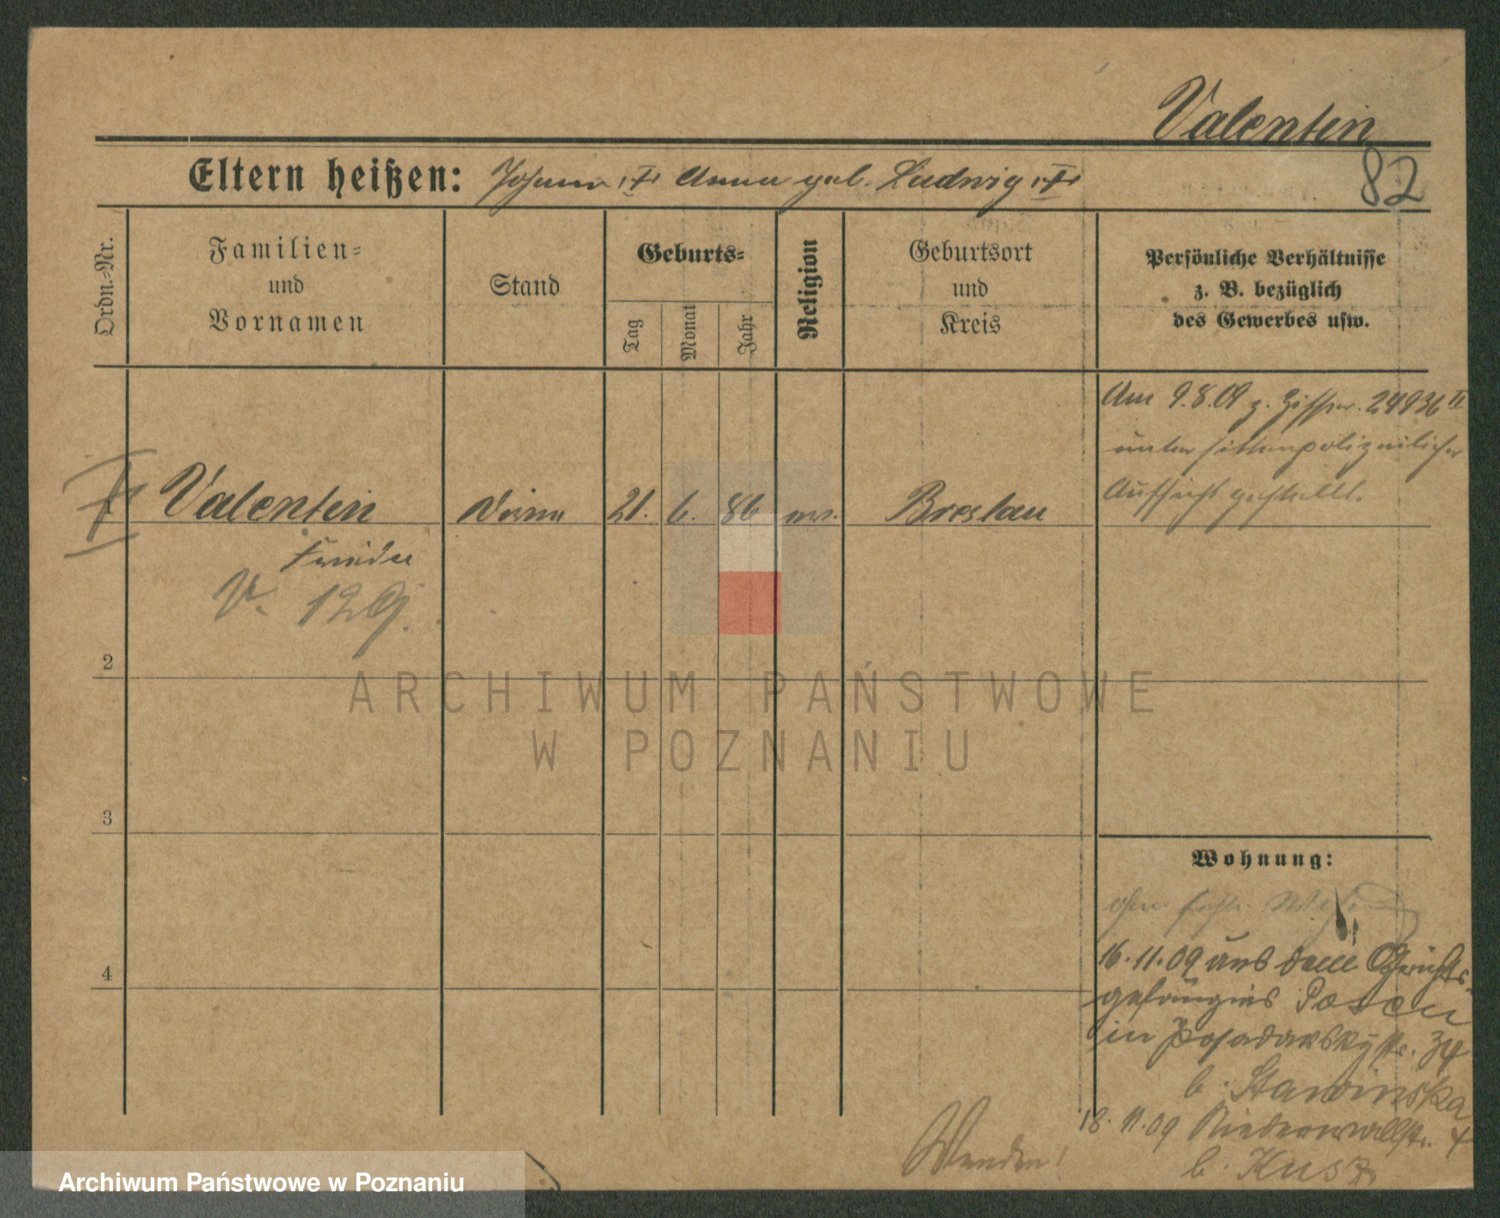 Valentin
82
Eltern heißen: Johann †, Anna geb. Ludwig †
Ordn.-Nr.
Familien-
und
Vornamen
Stand
Geburts-
Tag
Monat
Jahr
Religion
Geburtsort
und
Kreis
Persönliche Verhältnisse
z. B. bezüglich
des Gewerbes usw.
Am 9.8.09 z. Ziffer. 24936 II
unter sittenpolizeilicher
Aufsicht gestellt.
1 Valentin Dirne 21. 6. 86 ev. Breslau
Frieda
V. 129.
2
3
4
ARCHIWUM PAŃSTWOWE
W POZNANIU
Wohnung:
16.11.09 aus dem Gerichts-
gefängnis Posen
in Posadowskystr. 34
b. Stawinska
18.11.09 Niederwallstr. 4
b. Kusz
Wenden!
Archiwum Państwowe w Poznaniu